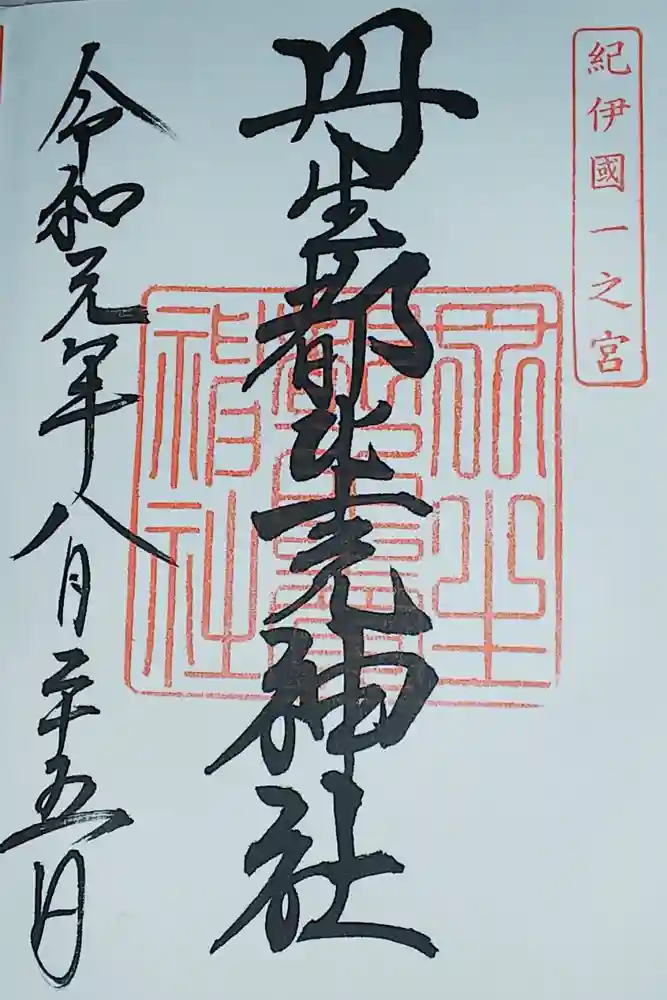 紀伊國一之宮
丹生都比売神社
丹生
神社
令和元年八月二十五日